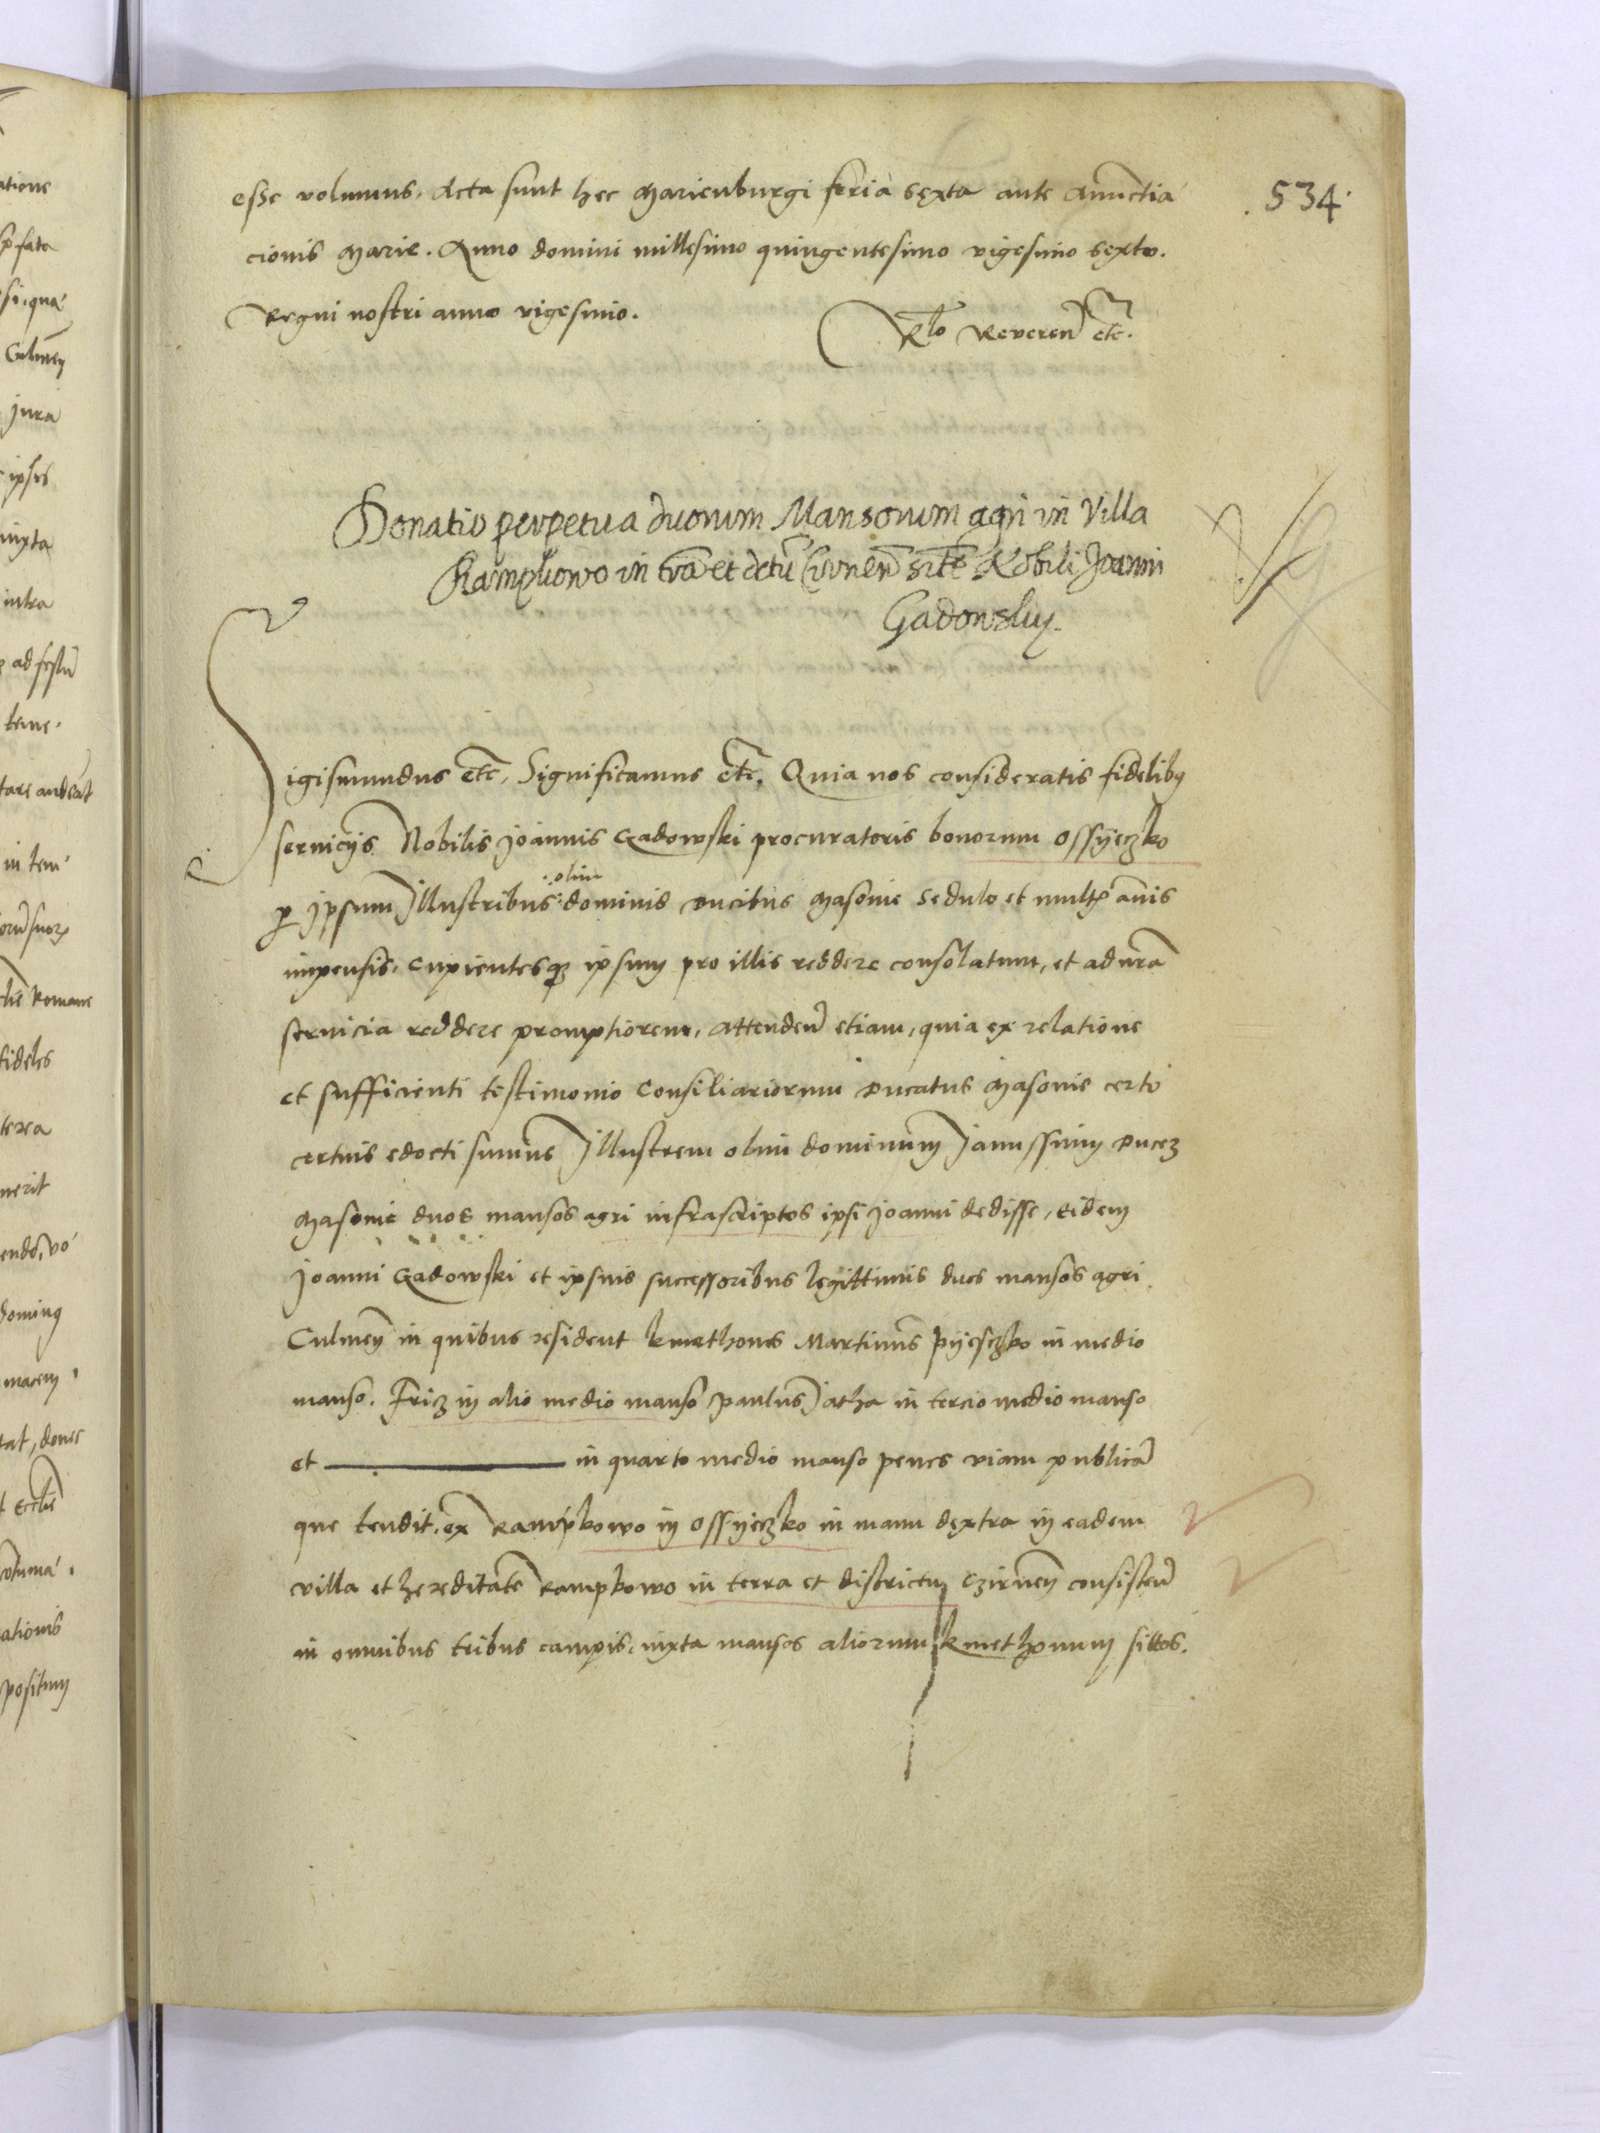 534.
esse volumus. Acta sunt hec Marienburgi feria sexta ante Anunctia
cionis Marie. Anno domini millesimo quingentesimo vigesimo sexto.
Regni nostri anno vigesimo.
Rlo Reveren etc.
Donatio perpetua duorum Mansorum agri in Villa
Rampkowo in tra et dctu Cirnen site Nobili Joanni
Gadowsky.
Sigismundus etc. Significamus etc. Quia nos consideratis fidelibus
servicijs Nobilis Joannis Gadowski procuratoris bonorum Ossyeczko
per ipsum Illustribus olim dominis Ducibus Masovie sedulo et multis annis
impensis, cupientesque ipsum pro illis reddere consolatum, et ad nram
servicia reddere promptiorem, attenden etiam, quia ex relatione
et sufficienti testimonio Consiliariorum Ducatus Masovie certo
certius edocti sumus Illustrem olim dominum Janussium Ducem
Masovie duos mansos agri infrascriptos ipsi Joanni dedisse, Eidem
Joanni Gadowski et ipsius successoribus legittimis duos mansos agri
Culmen in quibus resident kmethones Martinus pyeseczko in medio
manso. Fricz in alio medio manso Paulus Jatha in tercio medio manso
et in quarto medio manso penes viam publicam
que tendit ex Rampkowo in Ossyeczko in manu dextra in eadem
villa et hereditate Rampkowo in terra et districtu Czirnen consisten
in omnibus tribus campis, iuxta mansos aliorum kmethonum sittos.